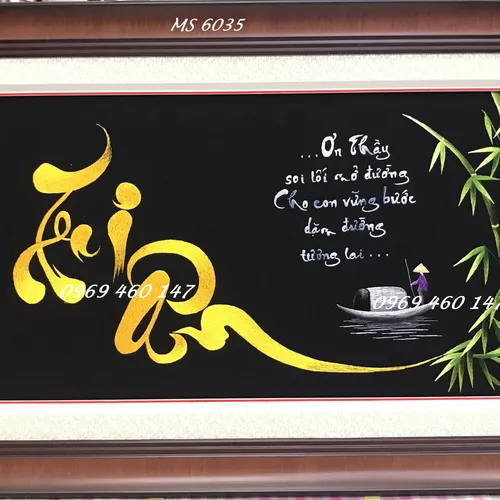 MS 6035
Tri Ân
...Ơn Thầy
soi lối mở đường
Cho con vững bước
dặm đường
tương lai...
0969 460 147
0969 460 147